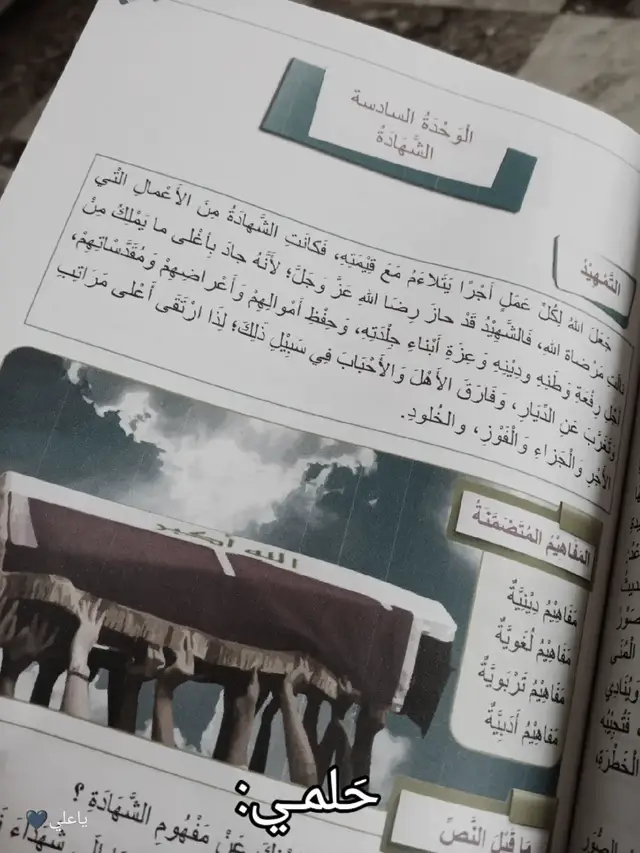 الْوَحْدَةُ السادسة
الشَّهَادَةُ
التَّمْهِيْدُ
جَعَلَ اللهُ لِكُلِّ عَمَلٍ أَجْرًا يَتَلاءَمُ مَعَ قِيْمَتِهِ، فَكانَتِ الشَّهادَةُ مِنَ الأَعْمالِ الَّتي
نالَتْ مَرْضاةَ اللهِ، فَالشَّهِيْدُ قَدْ حازَ رِضَا اللهِ عَزَّ وَجَلَّ؛ لأَنَّهُ جادَ بِأَغْلى ما يَمْلِكُ مِنْ
أَجْلِ رِفْعَةِ وَطَنِهِ ودِيْنِهِ وَعِزَةِ أَبْناءِ جِلْدَتِهِ، وَحِفْظِ أَمْوالِهِمْ وَأَعْراضِهِمْ وَمُقَدَّسَاتِهِمْ،
وَتَغَرَّبَ عَنِ الدِّيَارِ، وَفَارَقَ الأَهْلَ وَالأَحْبَابَ فِي سَبِيْلِ ذَلِكَ؛ لِذَا ارْتَقَى أَعْلى مَرَاتِبِ
الأَجْرِ وَالْجَزَاءِ وَالْفَوْزِ، والخُلودِ.
المَفَاهِيْمُ المُتَضَمَّنَةُ
مَفَاهِيْمُ دِيْنِيَّةٌ
مَفَاهِيْمُ لُغَوِيَّةٌ
مَفَاهِيْمُ تَرْبَوِيَّةٌ
مَفَاهِيْمُ أَدَبِيَّةٌ
الله أكبر
حَلمي:
ياعلي
مَا قَبْلَ النَّصِّ
عَنْ مَفْهُومِ الشَّهَادَةِ ؟